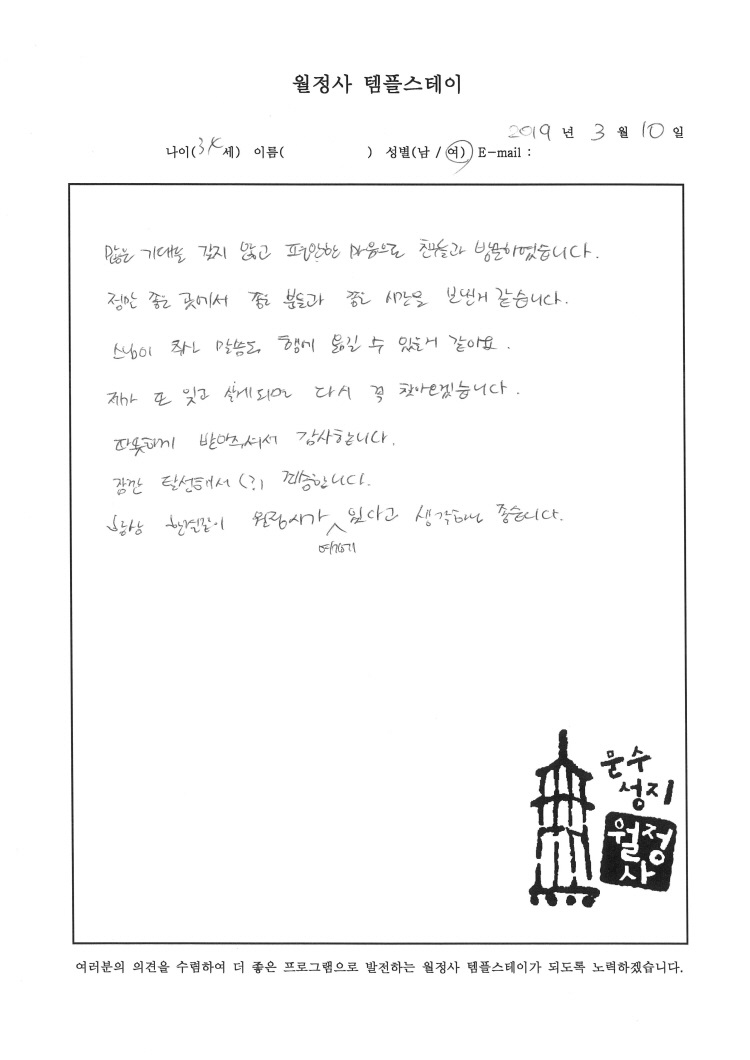 월정사 템플스테이
2019 년 3 월 10 일
나이(3 세) 이름( ) 성별(남 / 여) E-mail :
많은 기대를 갖지 않고 편안한 마음으로 친구들과 방문하였습니다.
정말 좋은 곳에서 좋은 분들과 좋은 시간을 보낸거 같습니다.
스님이 주신 말씀도 행에 옮길 수 있을거 같아요.
제가 또 잊고 살게되면 다시 꼭 찾아오겠습니다.
따뜻하게 받아주셔서 감사합니다.
잠깐 탈선해서(?) 죄송합니다.
항상 한결같이 월정사가 여기에 있다고 생각하니 좋습니다.
문수
성지
월정
사
여러분의 의견을 수렴하여 더 좋은 프로그램으로 발전하는 월정사 템플스테이가 되도록 노력하겠습니다.